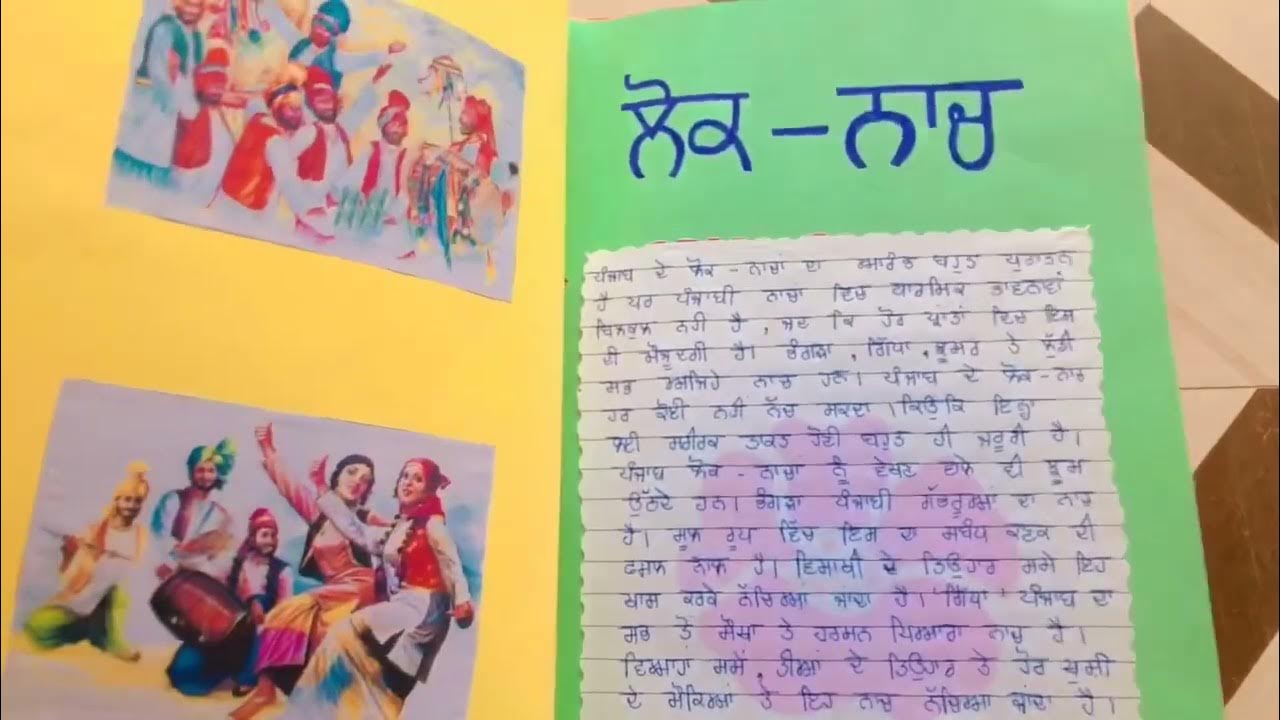 ਲੋਕ - ਨਾਚ
ਪੰਜਾਬ ਦੇ ਲੋਕ - ਨਾਚਾਂ ਦਾ ਬਹੁਤ ਪੁਰਾਤਨ
ਹੈ ਪਰ ਪੰਜਾਬੀ ਨਾਚਾ ਵਿਚ ਧਾਰਮਿਕ ਭਾਵਨਾਵਾਂ
ਬਿਲਕੁਲ ਨਹੀ ਹੈ , ਜਦ ਕਿ ਹੋਰ ਪ੍ਰਾਂਤਾਂ ਵਿਚ ਇਸ
ਦੀ ਮੌਜੂਦਗੀ ਹੈ। ਭੰਗੜਾ , ਗਿੱਧਾ , ਝੂਮਰ ਤੇ ਲੁੱਡੀ
ਸਭ ਅਜਿਹੇ ਨਾਚ ਹਨ। ਪੰਜਾਬ ਦੇ ਲੋਕ - ਨਾਚ
ਹਰ ਕੋਈ ਨਹੀ ਨੱਚ ਸਕਦਾ । ਕਿਉਂਕਿ ਇਨ੍ਹਾ
ਲਈ ਸਰੀਰਕ ਤਾਕਤ ਹੋਣੀ ਬਹੁਤ ਹੀ ਜਰੂਰੀ ਹੈ।
ਪੰਜਾਬ ਲੋਕ - ਨਾਚਾ ਨੂੰ ਵੇਖਣ ਵਾਲੇ ਵੀ ਝੂਮ
ਉੱਠਦੇ ਹਨ। ਭੰਗੜਾ ਪੰਜਾਬੀ ਗੱਭਰੂਆਂ ਦਾ ਨਾਚ
ਹੈ। ਮੂਲ ਰੂਪ ਵਿੱਚ ਇਸ ਦਾ ਸਬੰਧ ਕਣਕ ਦੀ
ਫਸਲ ਨਾਲ ਹੈ। ਵਿਸਾਖੀ ਦੇ ਤਿਉਹਾਰ ਸਮੇ ਇਹ
ਖਾਸ ਕਰਕੇ ਨੱਚਿਆ ਜਾਂਦਾ ਹੈ। 'ਗਿੱਧਾ' ਪੰਜਾਬ ਦਾ
ਸਭ ਤੋਂ ਸੌਖਾ ਤੇ ਹਰਮਨ ਪਿਆਰਾ ਨਾਚ ਹੈ।
ਵਿਆਹਾਂ ਸਮੇਂ , ਤੀਆਂ ਦੇ ਤਿਉਹਾਰ ਤੇ ਹੋਰ ਖੁਸੀ
ਦੇ ਮੌਕਿਆਂ ਤੇ ਇਹ ਨਾਚ ਨੱਚਿਆ ਜਾਂਦਾ ਹੈ।